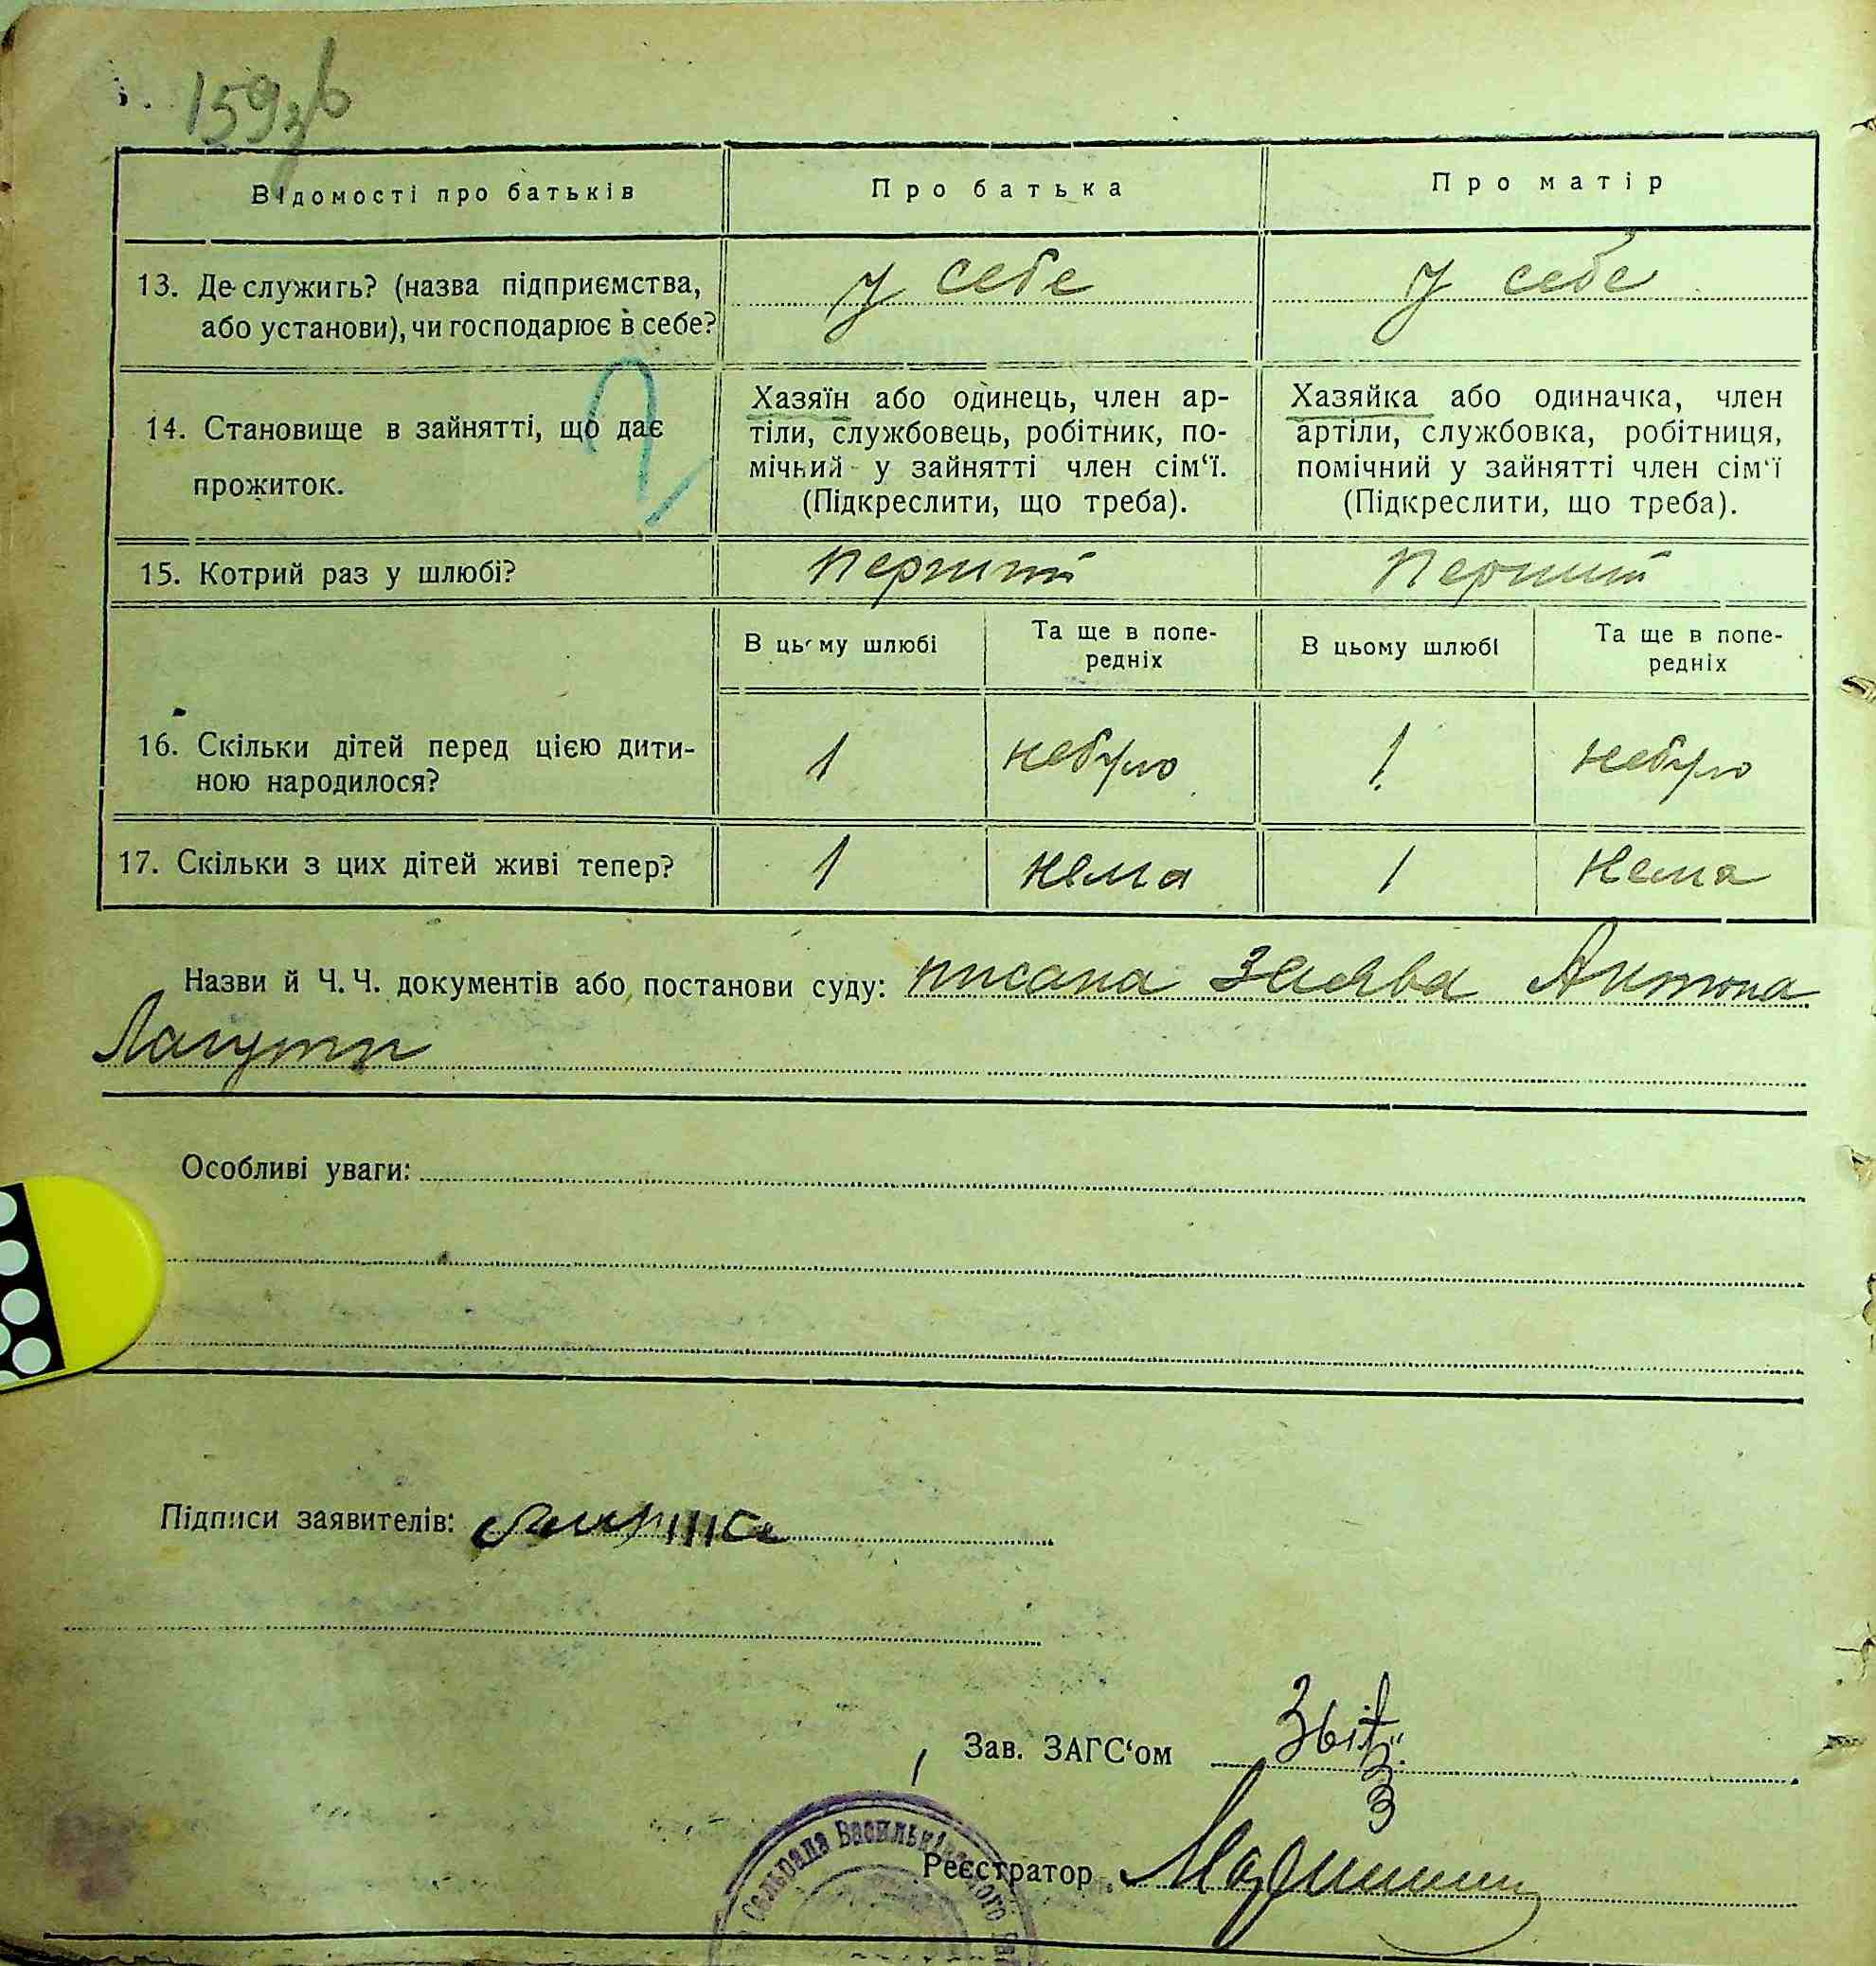 159зв
Відомості про батьків Про батька Про матір
13. Де служить? (назва підприємства, у себе у себе
або установи), чи господарює в себе?
14. Становище в зайнятті, що дає
прожиток.
Хазяїн або одинець, член ар-
тіли, службовець, робітник, по-
мічний у зайнятті член сім‘ї.
(Підкреслити, що треба).
Хазяйка або одиначка, член
артіли, службовка, робітниця,
помічний у зайнятті член сім‘ї
(Підкреслити, що треба).
15. Котрий раз у шлюбі? перший перший
В цьому шлюбі Та ще в попе-
редніх
В цьому шлюбі Та ще в попе-
редніх
16. Скільки дітей перед цією дити- 1 небуло 1 небуло
ною народилося?
17. Скільки з цих дітей живі тепер? 1 нема 1 нема
Назви й Ч. Ч. документів або постанови суду: писана заява Антона
Лагути
Особливі уваги:
Підписи заявителів:
Зав. ЗАГС‘ом
Сельрада Васильківського
Реєстратор